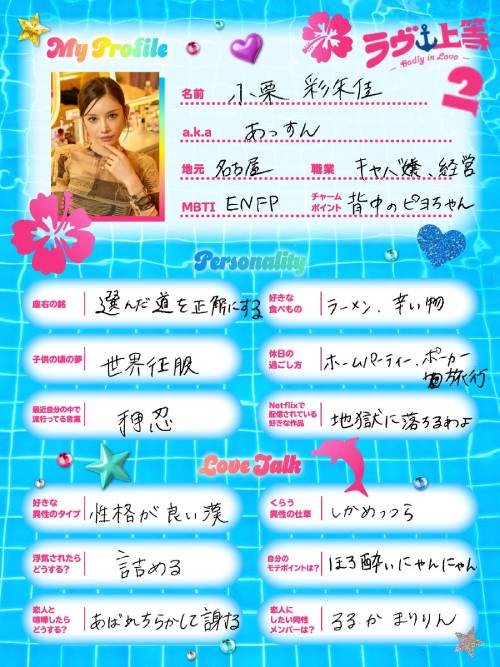 My Profile
ラヴ上等
Badly in Love
2
名前 小栗 彩朱佳
a.k.a あっすん
地元 名古屋 職業 キャバ嬢、経営
MBTI ENFP チャームポイント 背中のピヨちゃん
Personality
座右の銘 選んだ道を正解にする
好きな食べもの ラーメン、辛い物
子供の頃の夢 世界征服
休日の過ごし方 ホームパーティー、ポーカー
旅行
最近自分の中で流行ってる言葉 押忍
Netflixで配信されている好きな作品 地獄に落ちるわよ
Love Talk
好きな異性のタイプ 性格が良い漢
くらう異性の仕草 しかめっつら
浮気されたらどうする? 詰める
自分のモテポイントは? ほろ酔いにゃんにゃん
恋人と喧嘩したらどうする? あばれちらかして謝る
恋人にしたい男性メンバーは? るるか まりりん